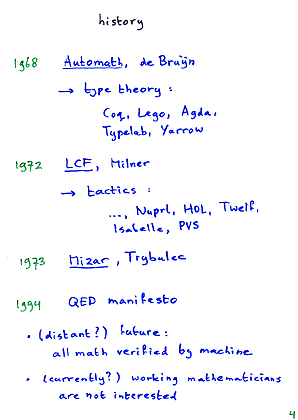 history
1968 Automath, de Bruijn
→ type theory:
Coq, Lego, Agda,
Typelab, Yarrow
1972 LCF, Milner
→ tactics:
..., Nuprl, HOL, Twelf,
Isabelle, PVS
1973 Mizar, Trybulec
1994 QED manifesto
• (distant?) future:
all math verified by machine
• (currently?) working mathematicians
are not interested
4